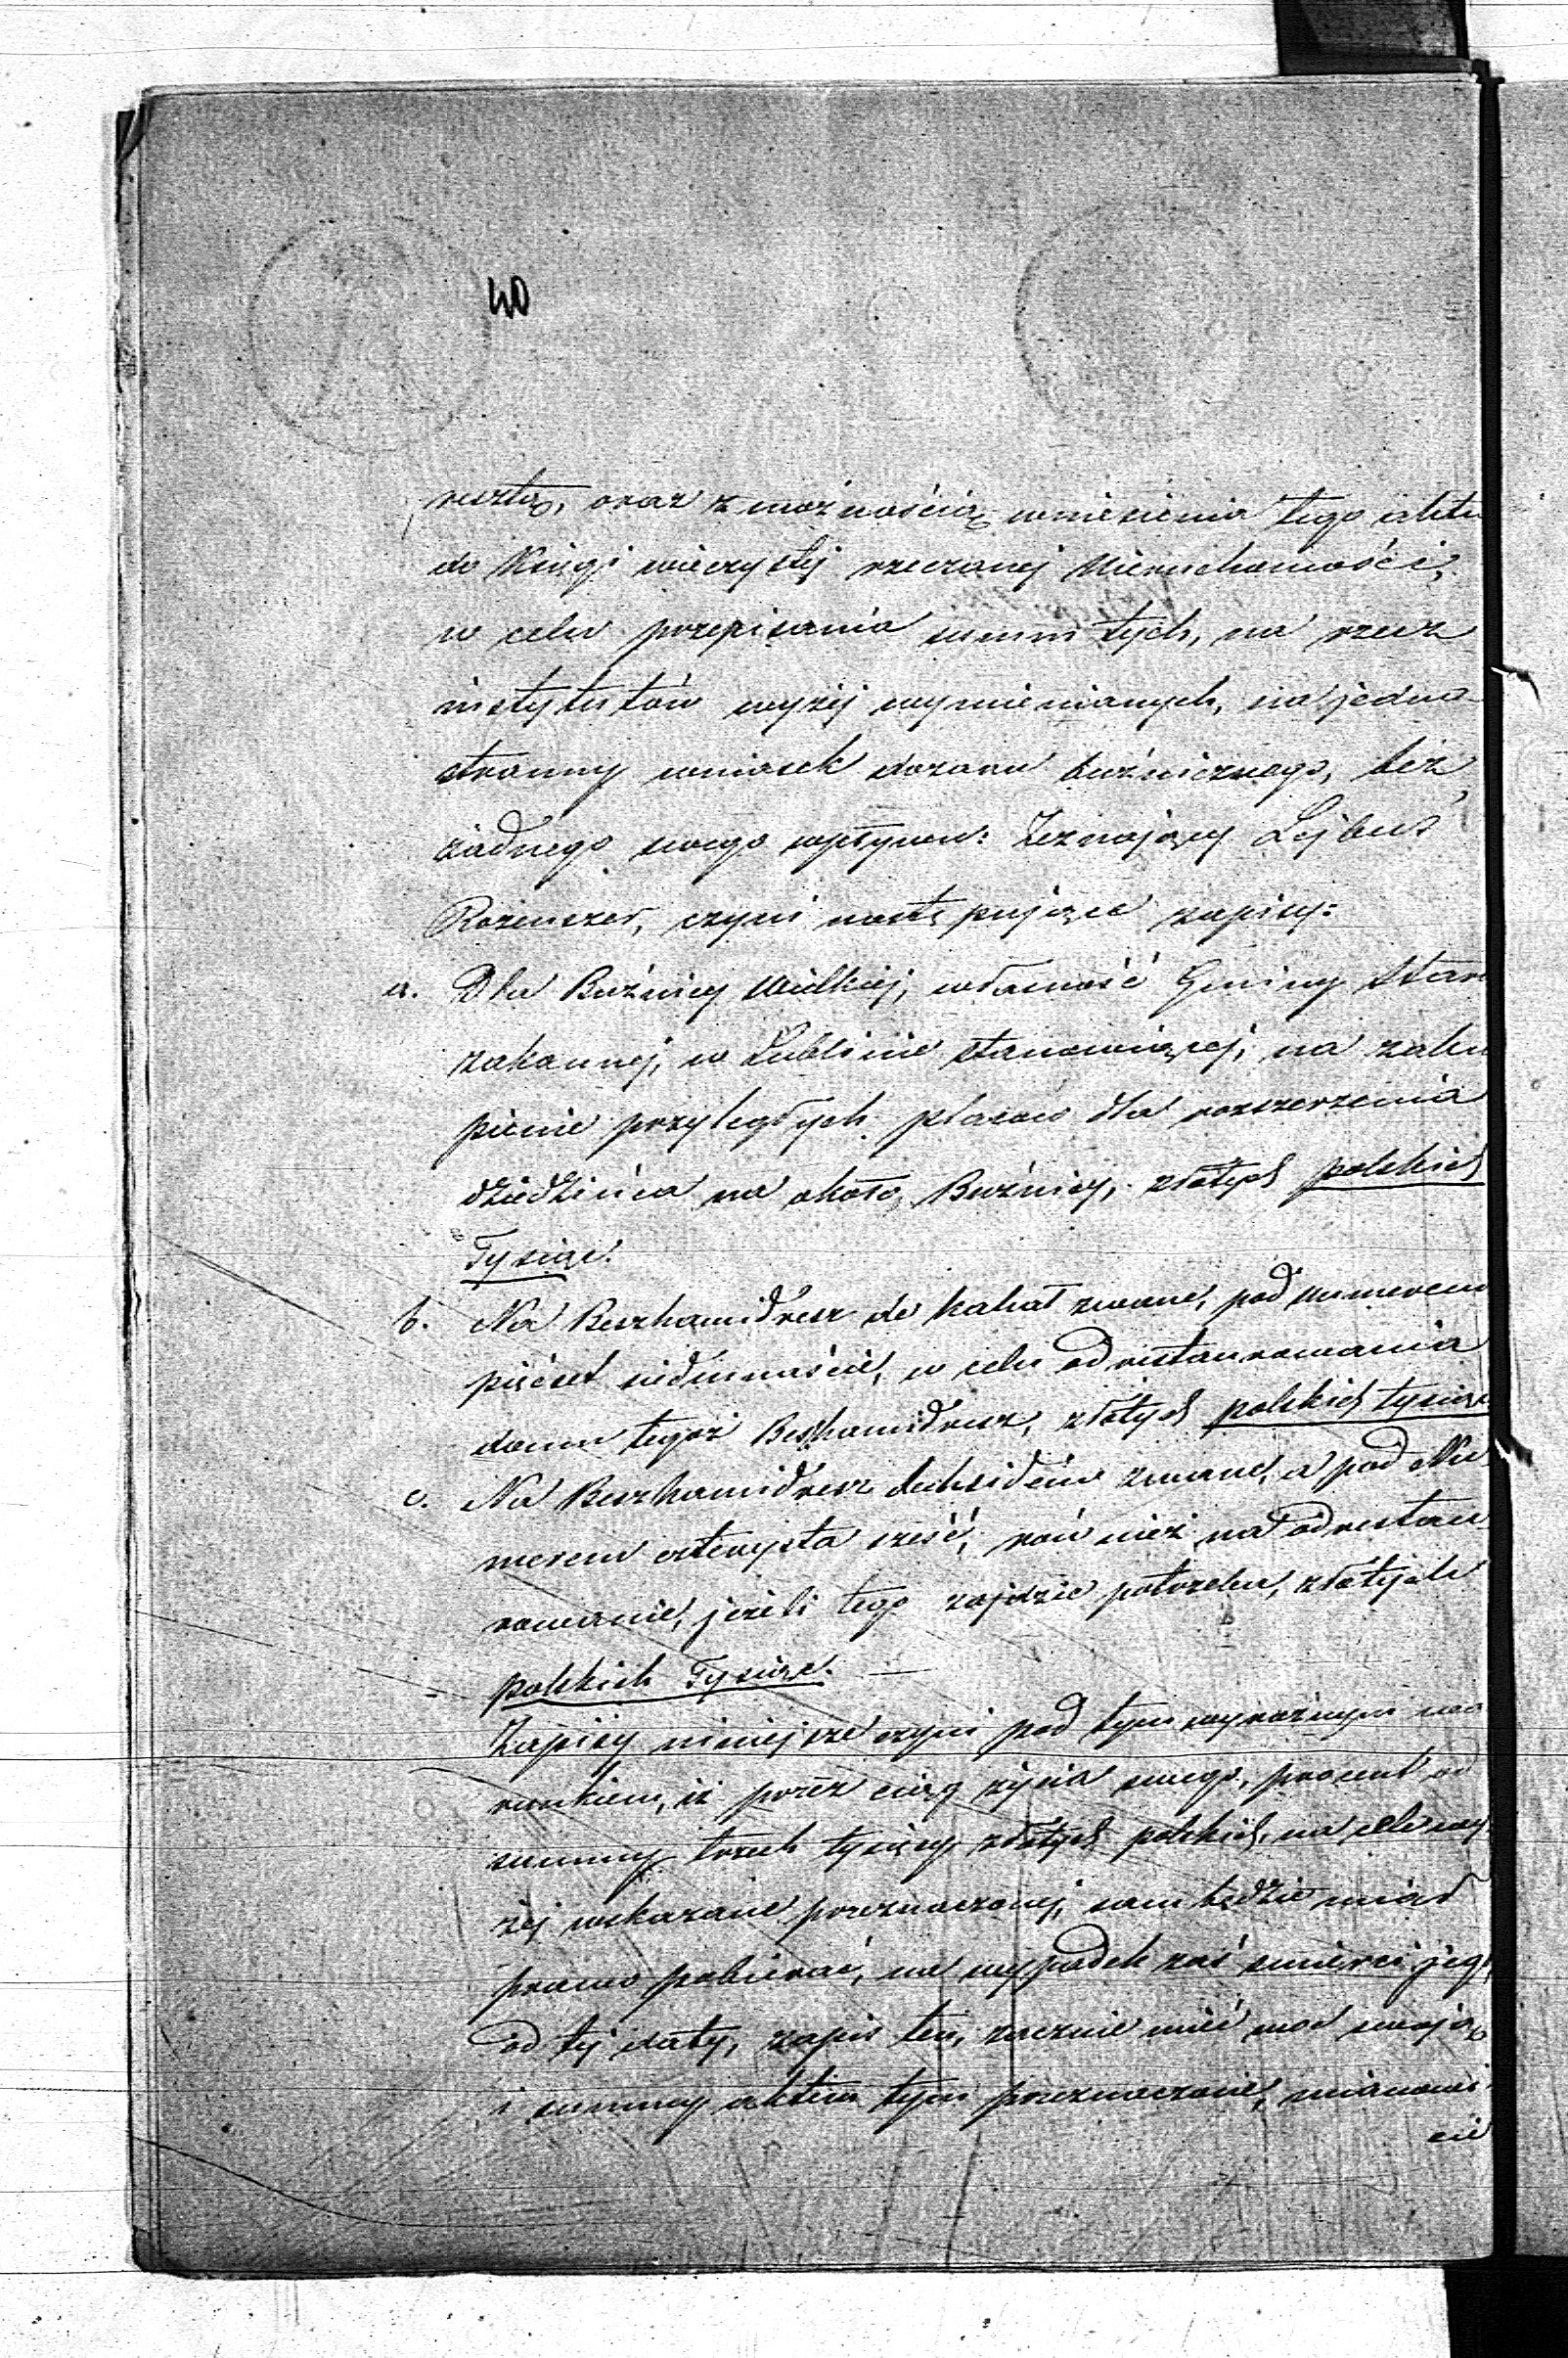 40
resztą, oraz z możnością wniesienia tego aktu
do Księgi wieczystej rzeczonej Nieruchomości,
w celu przepisania summ tych, na rzecz
instytutów wyżej wymienianych, na jedno-
stronny wniosek dozoru bużniczego, bez
żadnego swego wpływu: Zeznający Lejbuś
Rozenszer, czyni następujące zapisy:
a. Dla Bużnicy Wielkiej, własność Gminy Staro
zakonnej, w Lublinie stanowiącej, na zaku
pienie przyległych placów dla rozszerzenia
dziedzińca na około Bużnicy, złotych polskich
Tysiąc.
b. Na Beszhamidresz de kahał zwane, pod numerem
pięćset siedmnaście, w celu odrestaurowania
domu tegoż Beshamidresz, złotych polskich tysiąc
c. Na Beszhamidresz zwane, a pod Nu
merem czterysta sześć, rownież na odrestau
rowanie, jeżeli tego zajdzie potrzeba, złotych
polskich Tysiąc. —
Zapisy niniejsze czyni pod tym wyraźnym wa
runkiem, iż przez ciąg życia swego, procent od
summy trzech tysięcy złotych polskich, na cele wy
żej wskazane przeznaczonej, sam będzie miał
prawo pobierać, na wypadek zaś śmierci jego,
od tej daty, zapis ten, zacznie mieć moc swoją
i summy aktem tym przeznaczone, mianowi-
cie